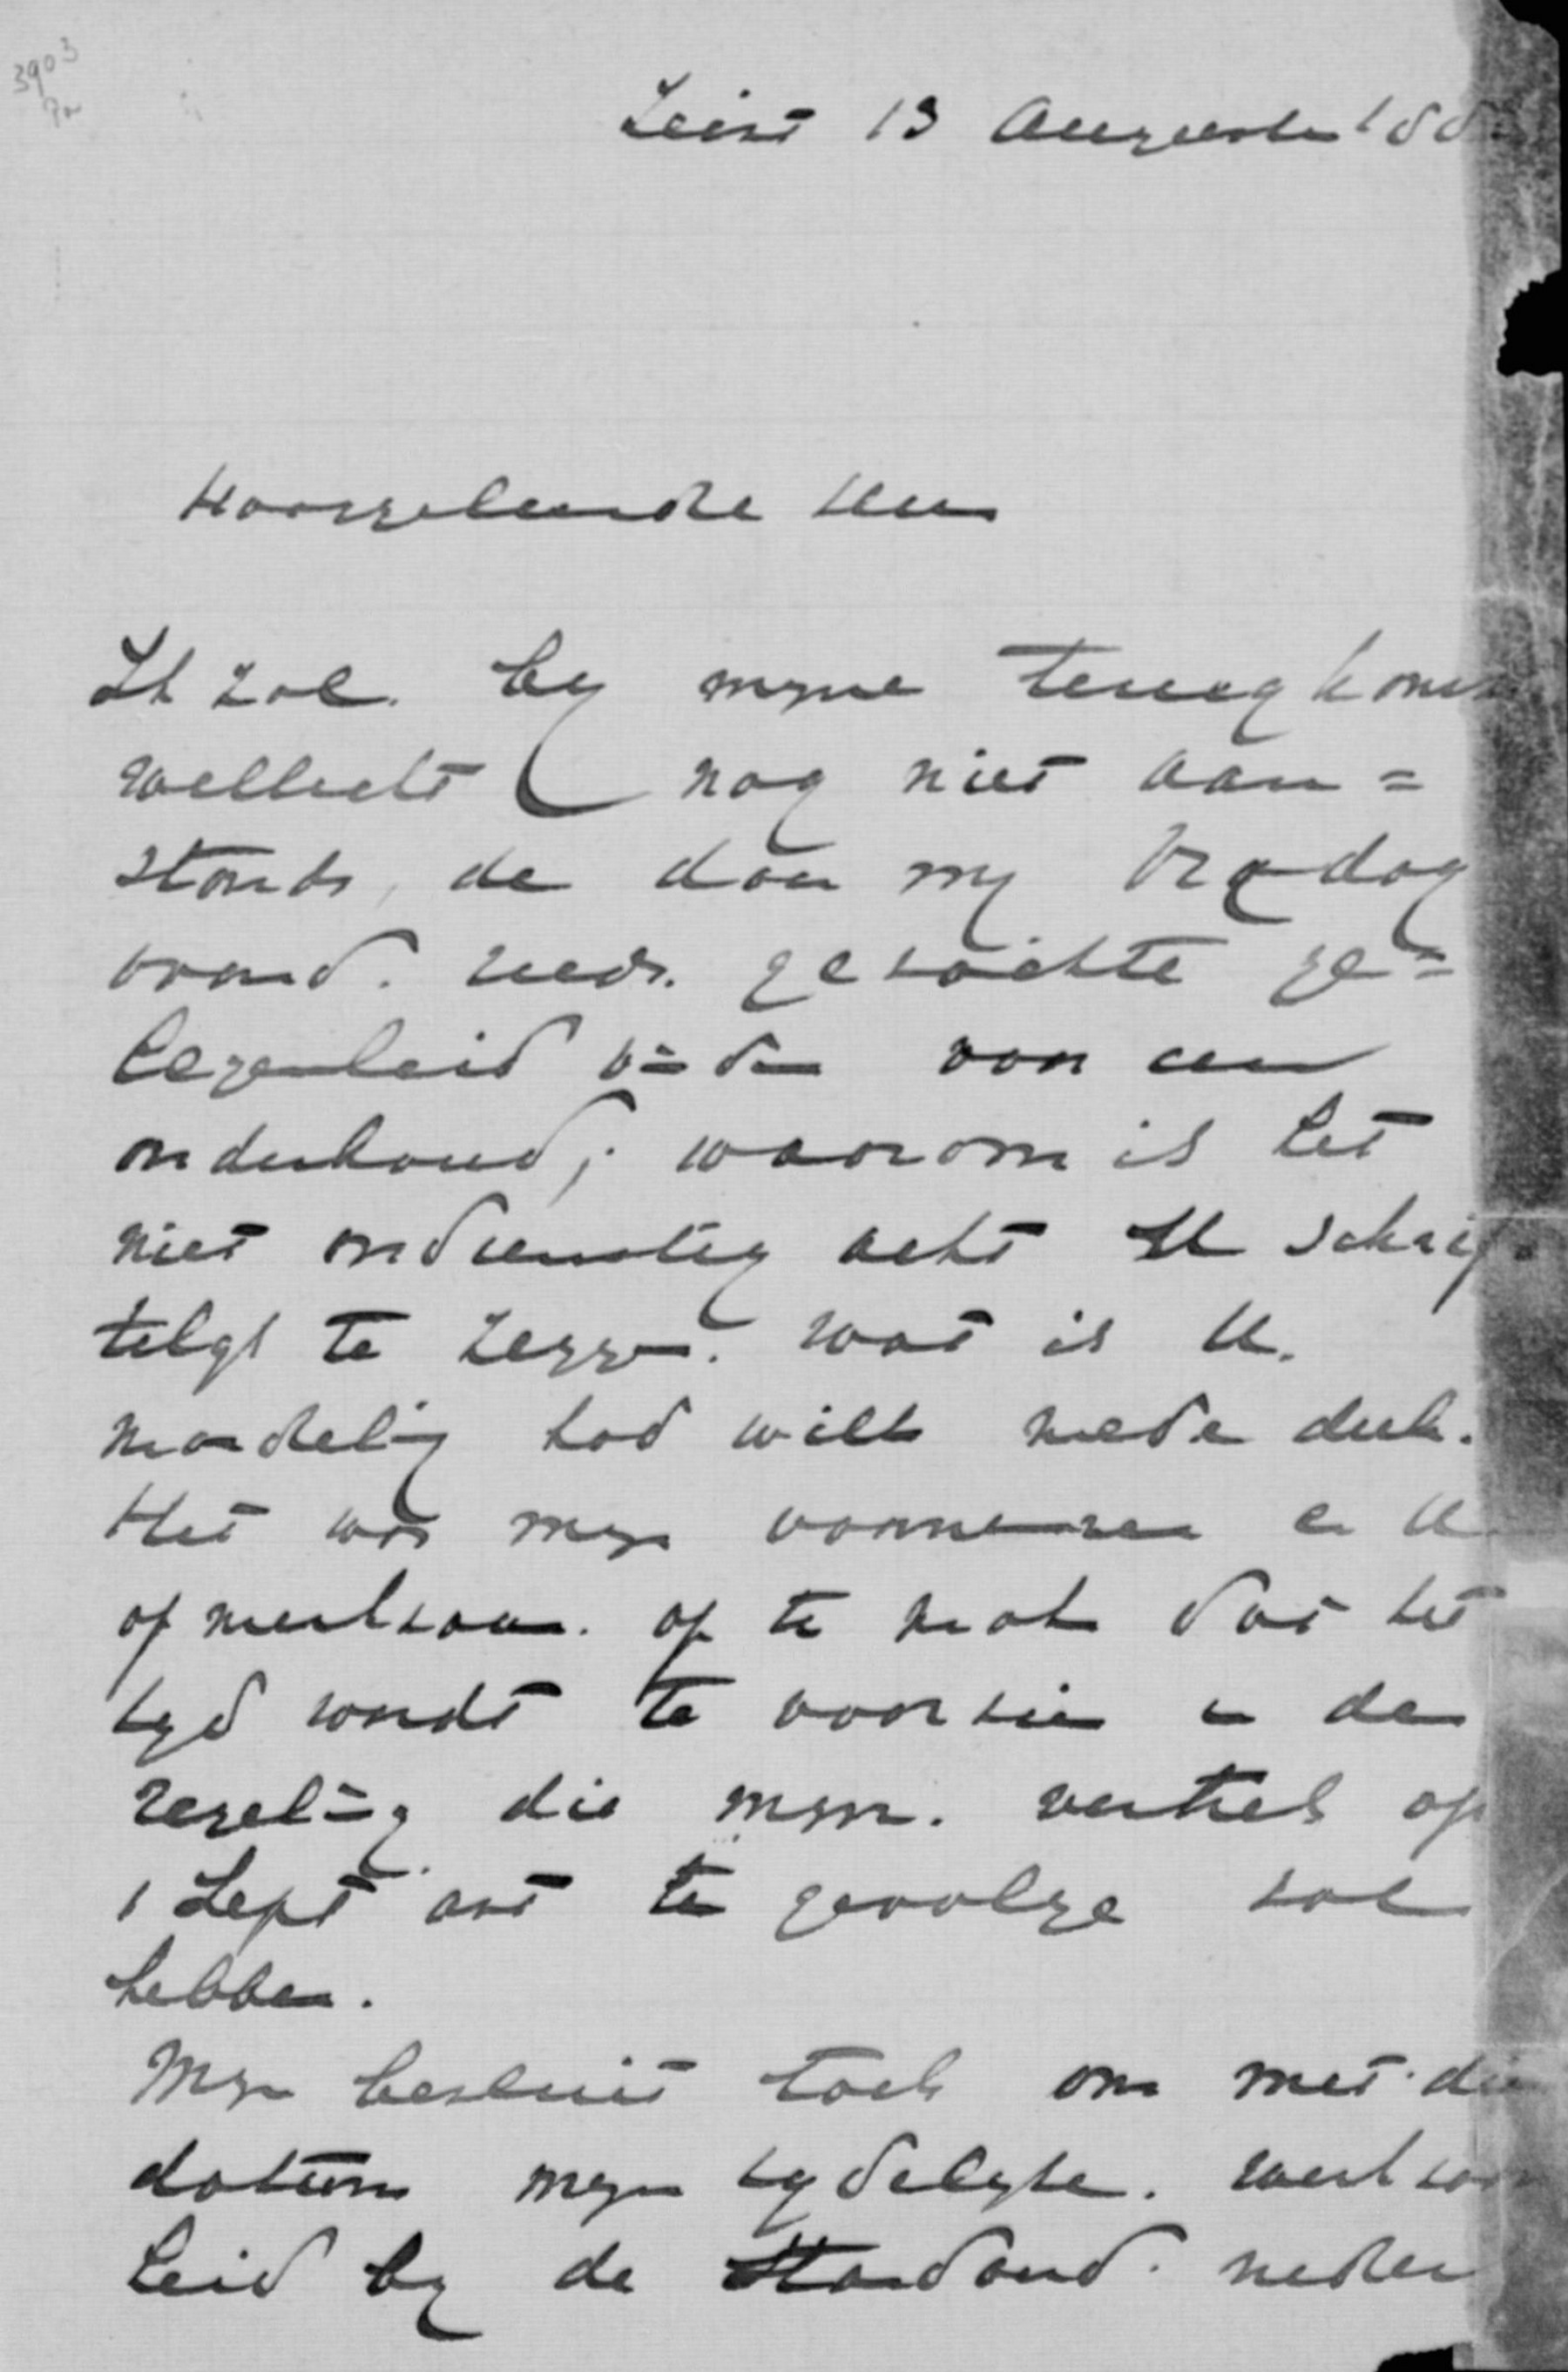 3903
Zeist 13 Augustus 188
Hooggeleerde Heer
Ik zal by myne terugkomst
wellicht nog niet aan=
stonds, de door my Vrydag
avond reeds gezochte ge=
legenheid vinden voor een
onderhoud; waarom ik het
niet ondienstig acht U schrif
telyk te zeggen wat ik U
mondeling had willen mede deelen.
Het was myn voornemen er U
opmerkzaam op te maken dat het
tyd wordt te voorzien in de
regeling die myn vertrek op
1 Sept ast te gevolge zal
hebben.
Myn besluit toch om met dien
datum myn tydelyke werkzaam
heid by de Standaard neder